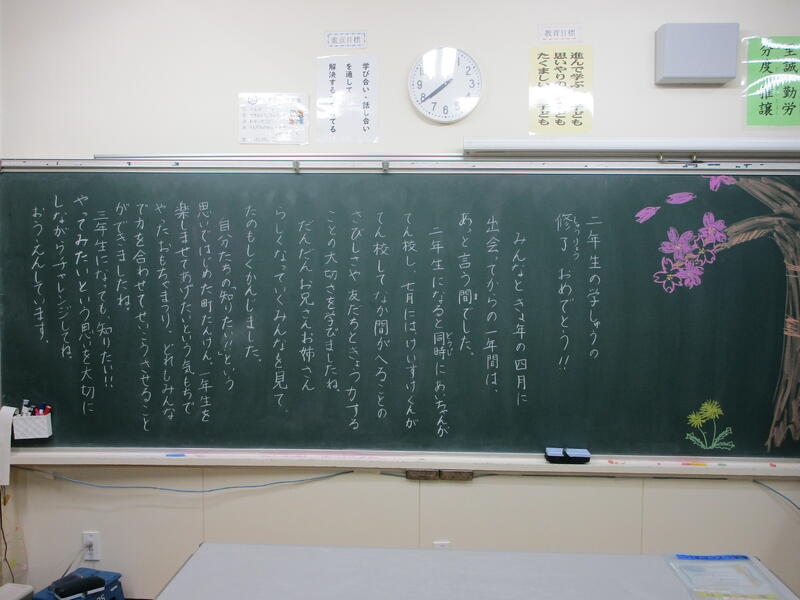 重点目標
学び合い・話し合い
を通して
解決する
てる
教育目標
進んで学ぶ子ども
思いやりの
子ども
たくましい
子ども
至誠
勤労
分度
推譲
12
1
2
3
4
5
6
7
8
9
10
11
二年生の学しゅうの
修了、おめでとう!!
しゅうりょう
みんなときょ年の四月に
出会てからの一年間は、
あっと言う間でした。
ま
二年生になると同時にめいちゃんが
どうじ
てん校し、七月にはけいすけくんが
てん校して なか間がへることの
さびしさや 友だちときょう力する
ことの大切さを学びましたね。
だんだんお兄さんお姉さん
らしくなっていくみんなを見て、
たのもしくかんじました。
自分たちの「知りたい!!」という
思いではじめた町たんけん、一年生を
楽しませてあげたいという気もちで
やったおもちゃまつり、どれもみんな
で力を合わせてせいこうさせること
ができましたね。
三年生になっても、「知りたい!!
やってみたい」という思いを大切に
しながらチャレンジしてね。
おうえんしています。